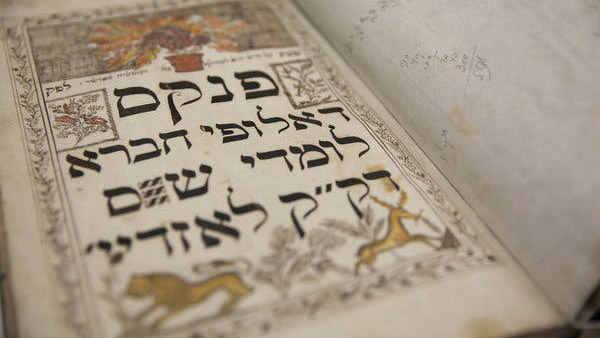 לפק
פנקס
דאלופי חברא
לומדי ש״ס
דק״ק לאזדיי׳